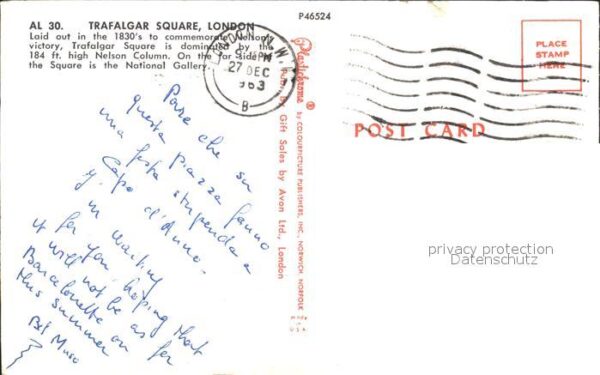 AL 30. TRAFALGAR SQUARE, LONDON
Laid out in the 1830's to commemorate Nelson's
victory, Trafalgar Square is dominated by the
184 ft. high Nelson Column. On the far side of
the Square is the National Gallery.
P46524
27 DEC
1963
B
PLACE
STAMP
HERE
POST CARD
Plastichrome ® by COLOURPICTURE PUBLISHERS, INC., NORWICH NORFOLK
Publ. by Gift Sales by Avon Ltd., London
Pare che su
questa piazza fanno
una festa stupenda a
Capo d'Anno.
I'm waiting
for you hoping that
it will not be as for
Barcelonette on
this summer
Bel Muso
privacy protection
Datenschutz